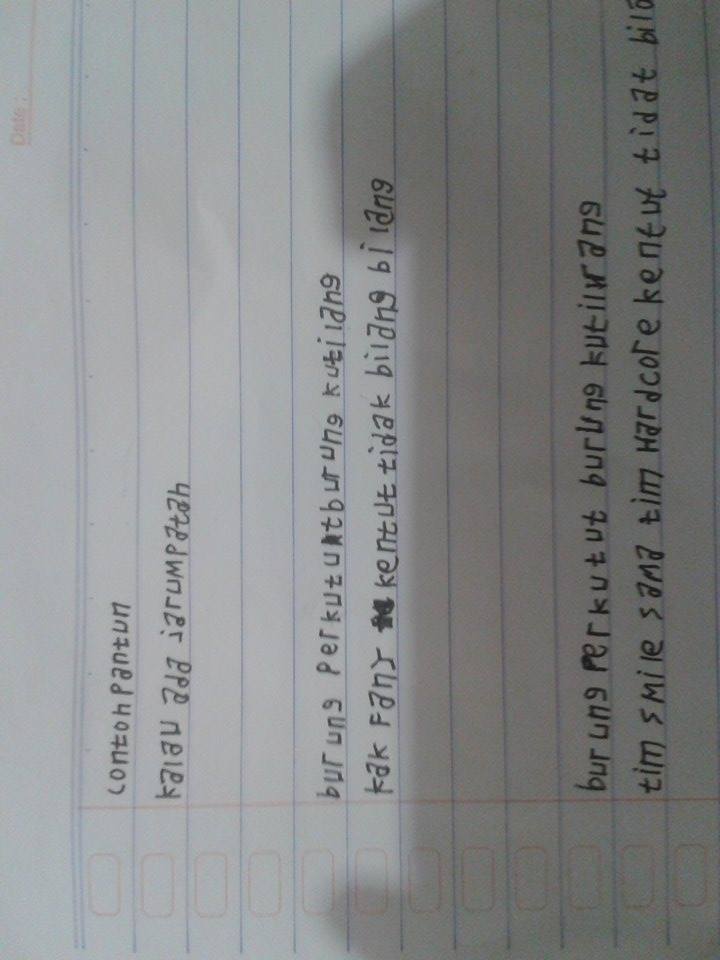 Date :
contoh pantun
kalau ada jarum patah
burung perkutut burung kutilang
kak kentut tidak bilang bilang
burung burung
tim smile sama tim Hardcore kentut tidat